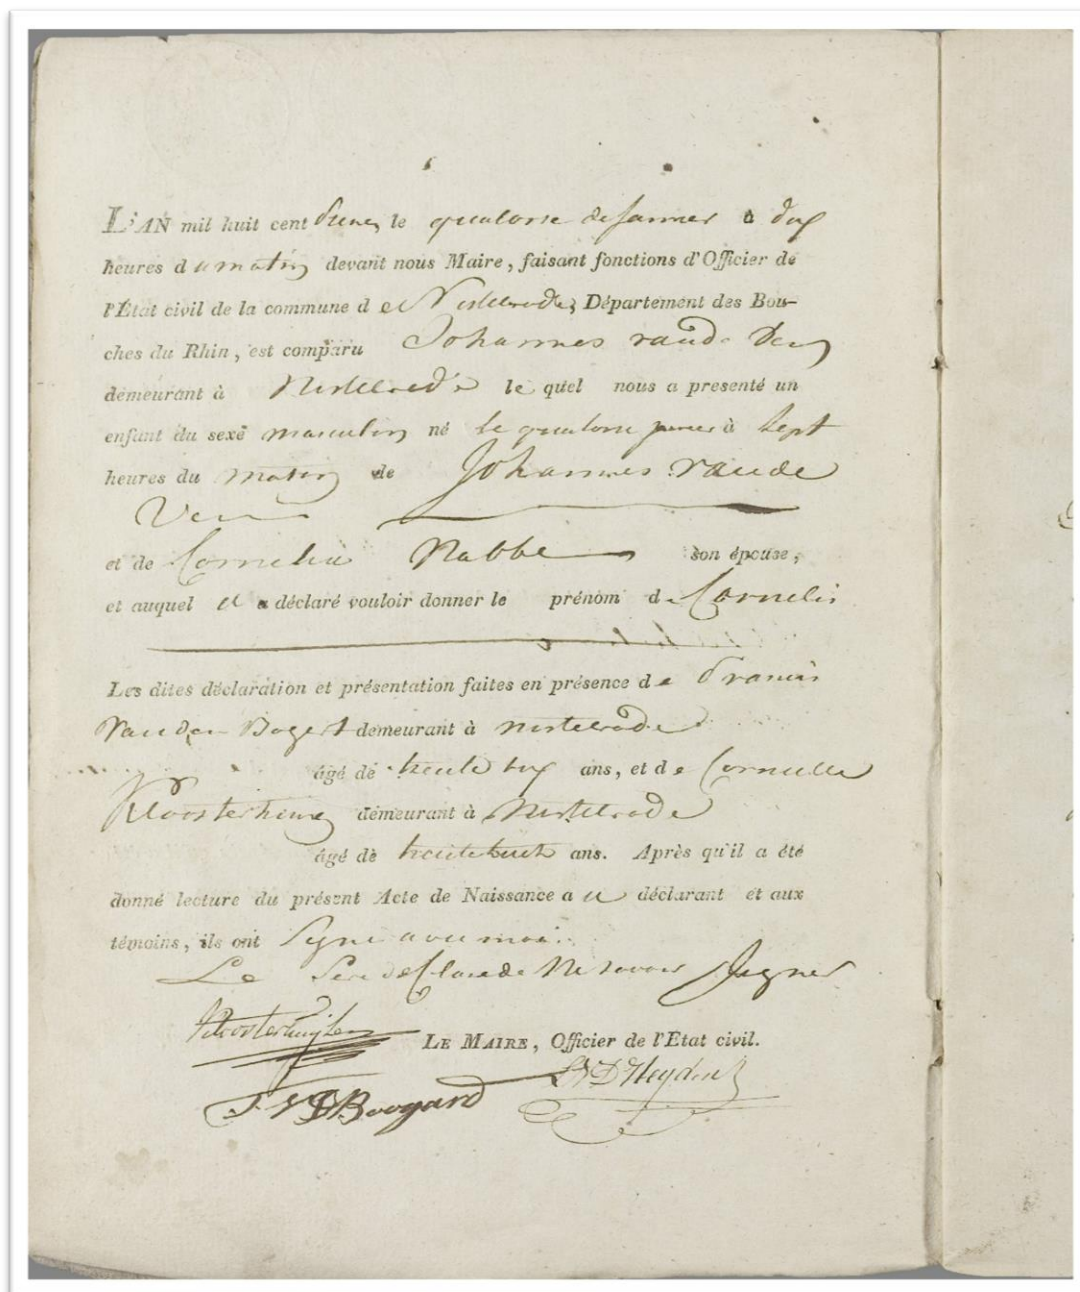 L'AN mil huit cent onze, le quatorse de janvier à dix
heures du matin devant nous Maire, faisant fonctions d'Officier de
l'État civil de la commune de Nistelrode, Département des Bou-
ches du Rhin, est comparu Johannes vande Ven
demeurant à Nistelrode le quel nous a presenté un
enfant du sexe masculin né le quatorse janvier à sept
heures du matin de Johannes vande
Ven
et de Cornelia Nabbe son épouse,
et auquel il a déclaré vouloir donner le prénom de Cornelis
Les dites déclaration et présentation faites en présence de Francis
Van den Bogert demeurant à Nistelrode
âgé de trente ans, et de Cornielle
Kloosterhuis demeurant à Nistelrode
âgé de trente huit ans. Après qu'il a été
donné lecture du présent Acte de Naissance au déclarant et aux
témoins, ils ont signé avec moi.
Le Pere declare Ne savoir Signer
Kloosterhuijsen
LE MAIRE, Officier de l'Etat civil.
VDHeyden
F. VD Boogard